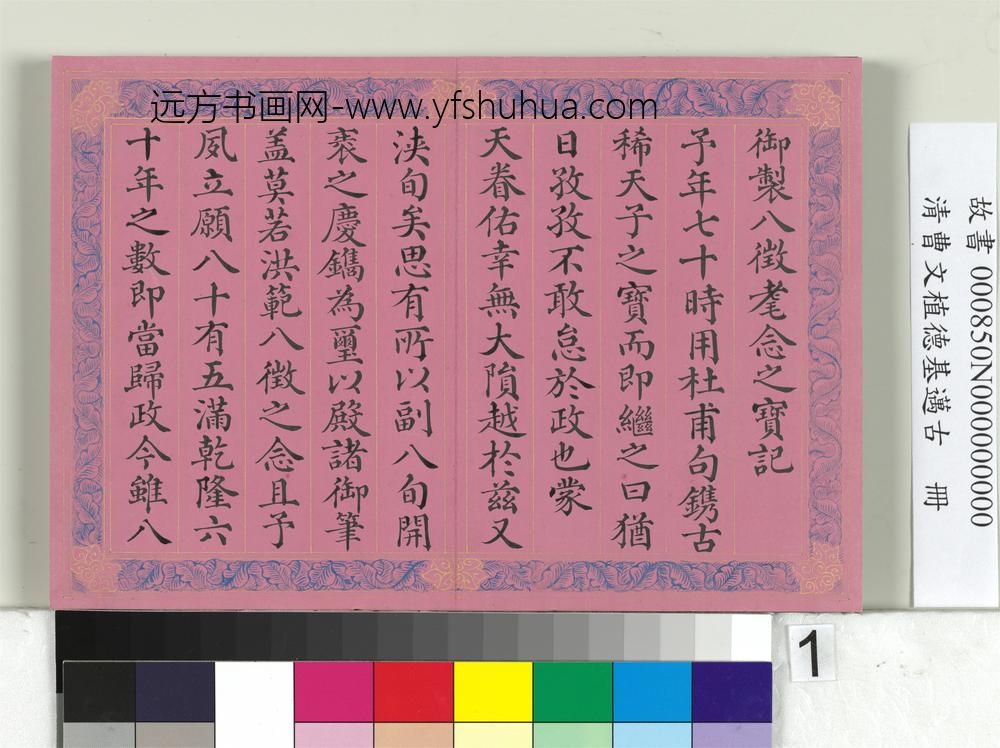 远方书画网-www.yfshuhua.com
御製八徵耄念之寶記
予年七十時用杜甫句鐫古
稀天子之寶而即繼之曰猶
日孜孜不敢怠於政也蒙
天眷佑幸無大隕越於茲又
浹旬矣思有所以副八旬開
袠之慶鐫為璽以殿諸御筆
盖莫若洪範八徵之念且予
夙立願八十有五滿乾隆六
十年之數即當歸政今雖八
故書 000850N000000000
清曹文植德基邁古 冊
1